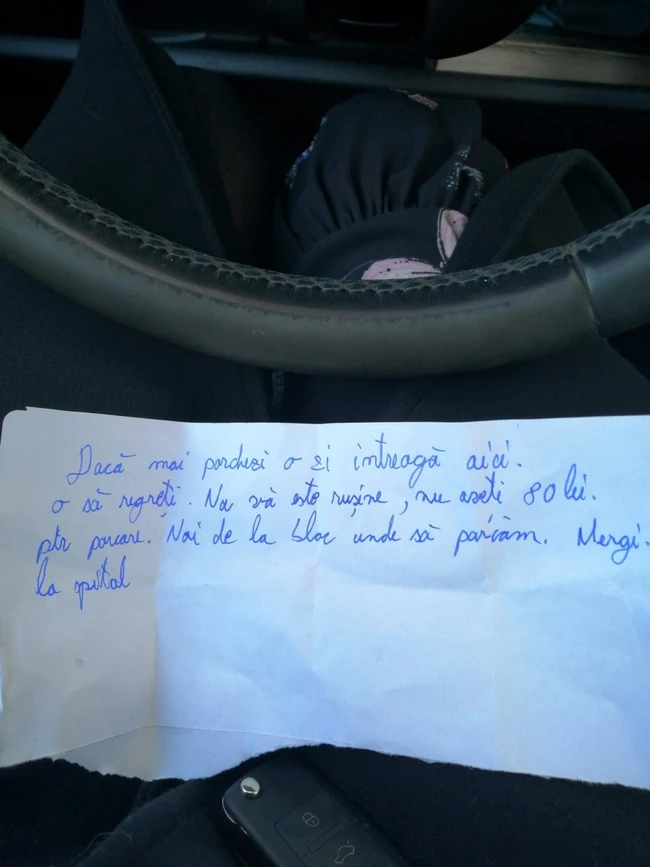 Dacă mai parchezi o zi întreagă aici.
o să regreți. Nu vă este rușine, nu aveți 80 lei.
ptr parcare. Noi de la bloc unde să parcăm. Mergi.
la spital